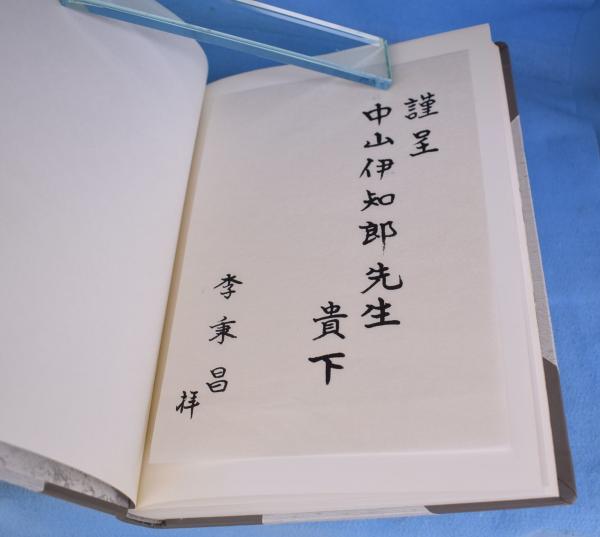 謹呈
中山伊知郎先生
貴下
李秉昌
拝